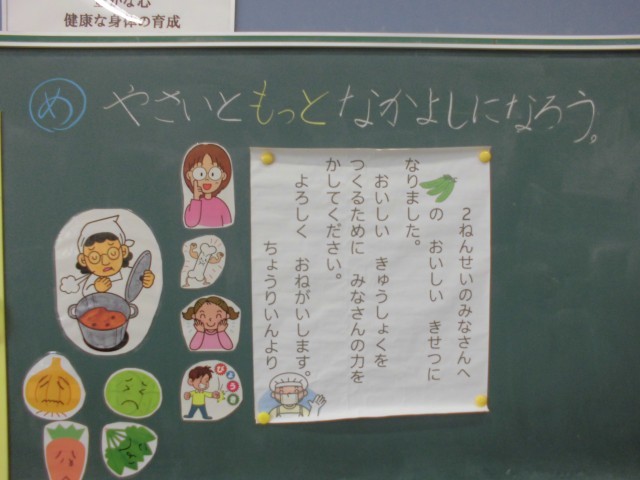 健康な身体の育成
め やさいともっとなかよしになろう。
2ねんせいのみなさんへ
の おいしい きせつに
なりました。
おいしい きゅうしょくを
つくるために みなさんの力を
かしてください。
よろしく おねがいします。
ちょうりいんより
びょう気